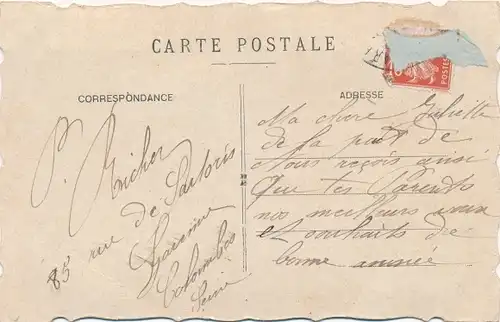 CARTE POSTALE
CORRESPONDANCE
ADRESSE
P. Richer
85 rue de Sartoris
Garenne
Colombes
Seine
Ma chère Juliette
de la part de
nous reçois ainsi
que tes Parents
nos meilleurs vœux
et souhaits de
bonne année
POSTES